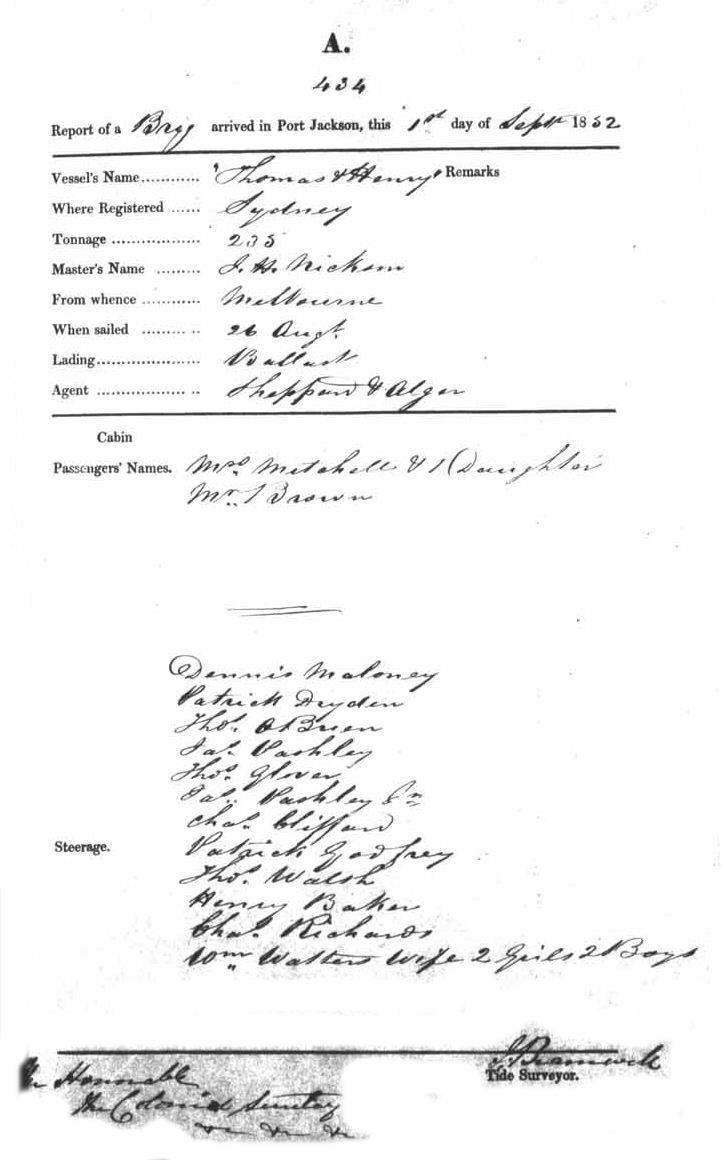 A.
434
Report of a Brig arrived in Port Jackson, this 1st day of Septr 1852
Vessel's Name............ "Thomas & Henry" Remarks
Where Registered ...... Sydney
Tonnage .................. 235
Master's Name ......... J. H. Nickson
From whence ............ Melbourne
When sailed ......... .. 26 Augt.
Lading..................... Ballast
Agent .................. .. Sheppard & Alger
Cabin
Passengers' Names. Mrs. Mitchell & 1 Daughter
Mr. Brown
Dennis Maloney
Patrick Dryden
Thos. OBrien
Jas. Pashley
Thos. Glover
Jas. Pashley Jn
Chas. Clifford
Steerage. Patrick Godfrey
Thos. Walsh
Henry Baker
Chas. Richards
Wm Watters Wife 2 Girls 2 Boys
Tide Surveyor.
The Honorable
the Colonial Secretary